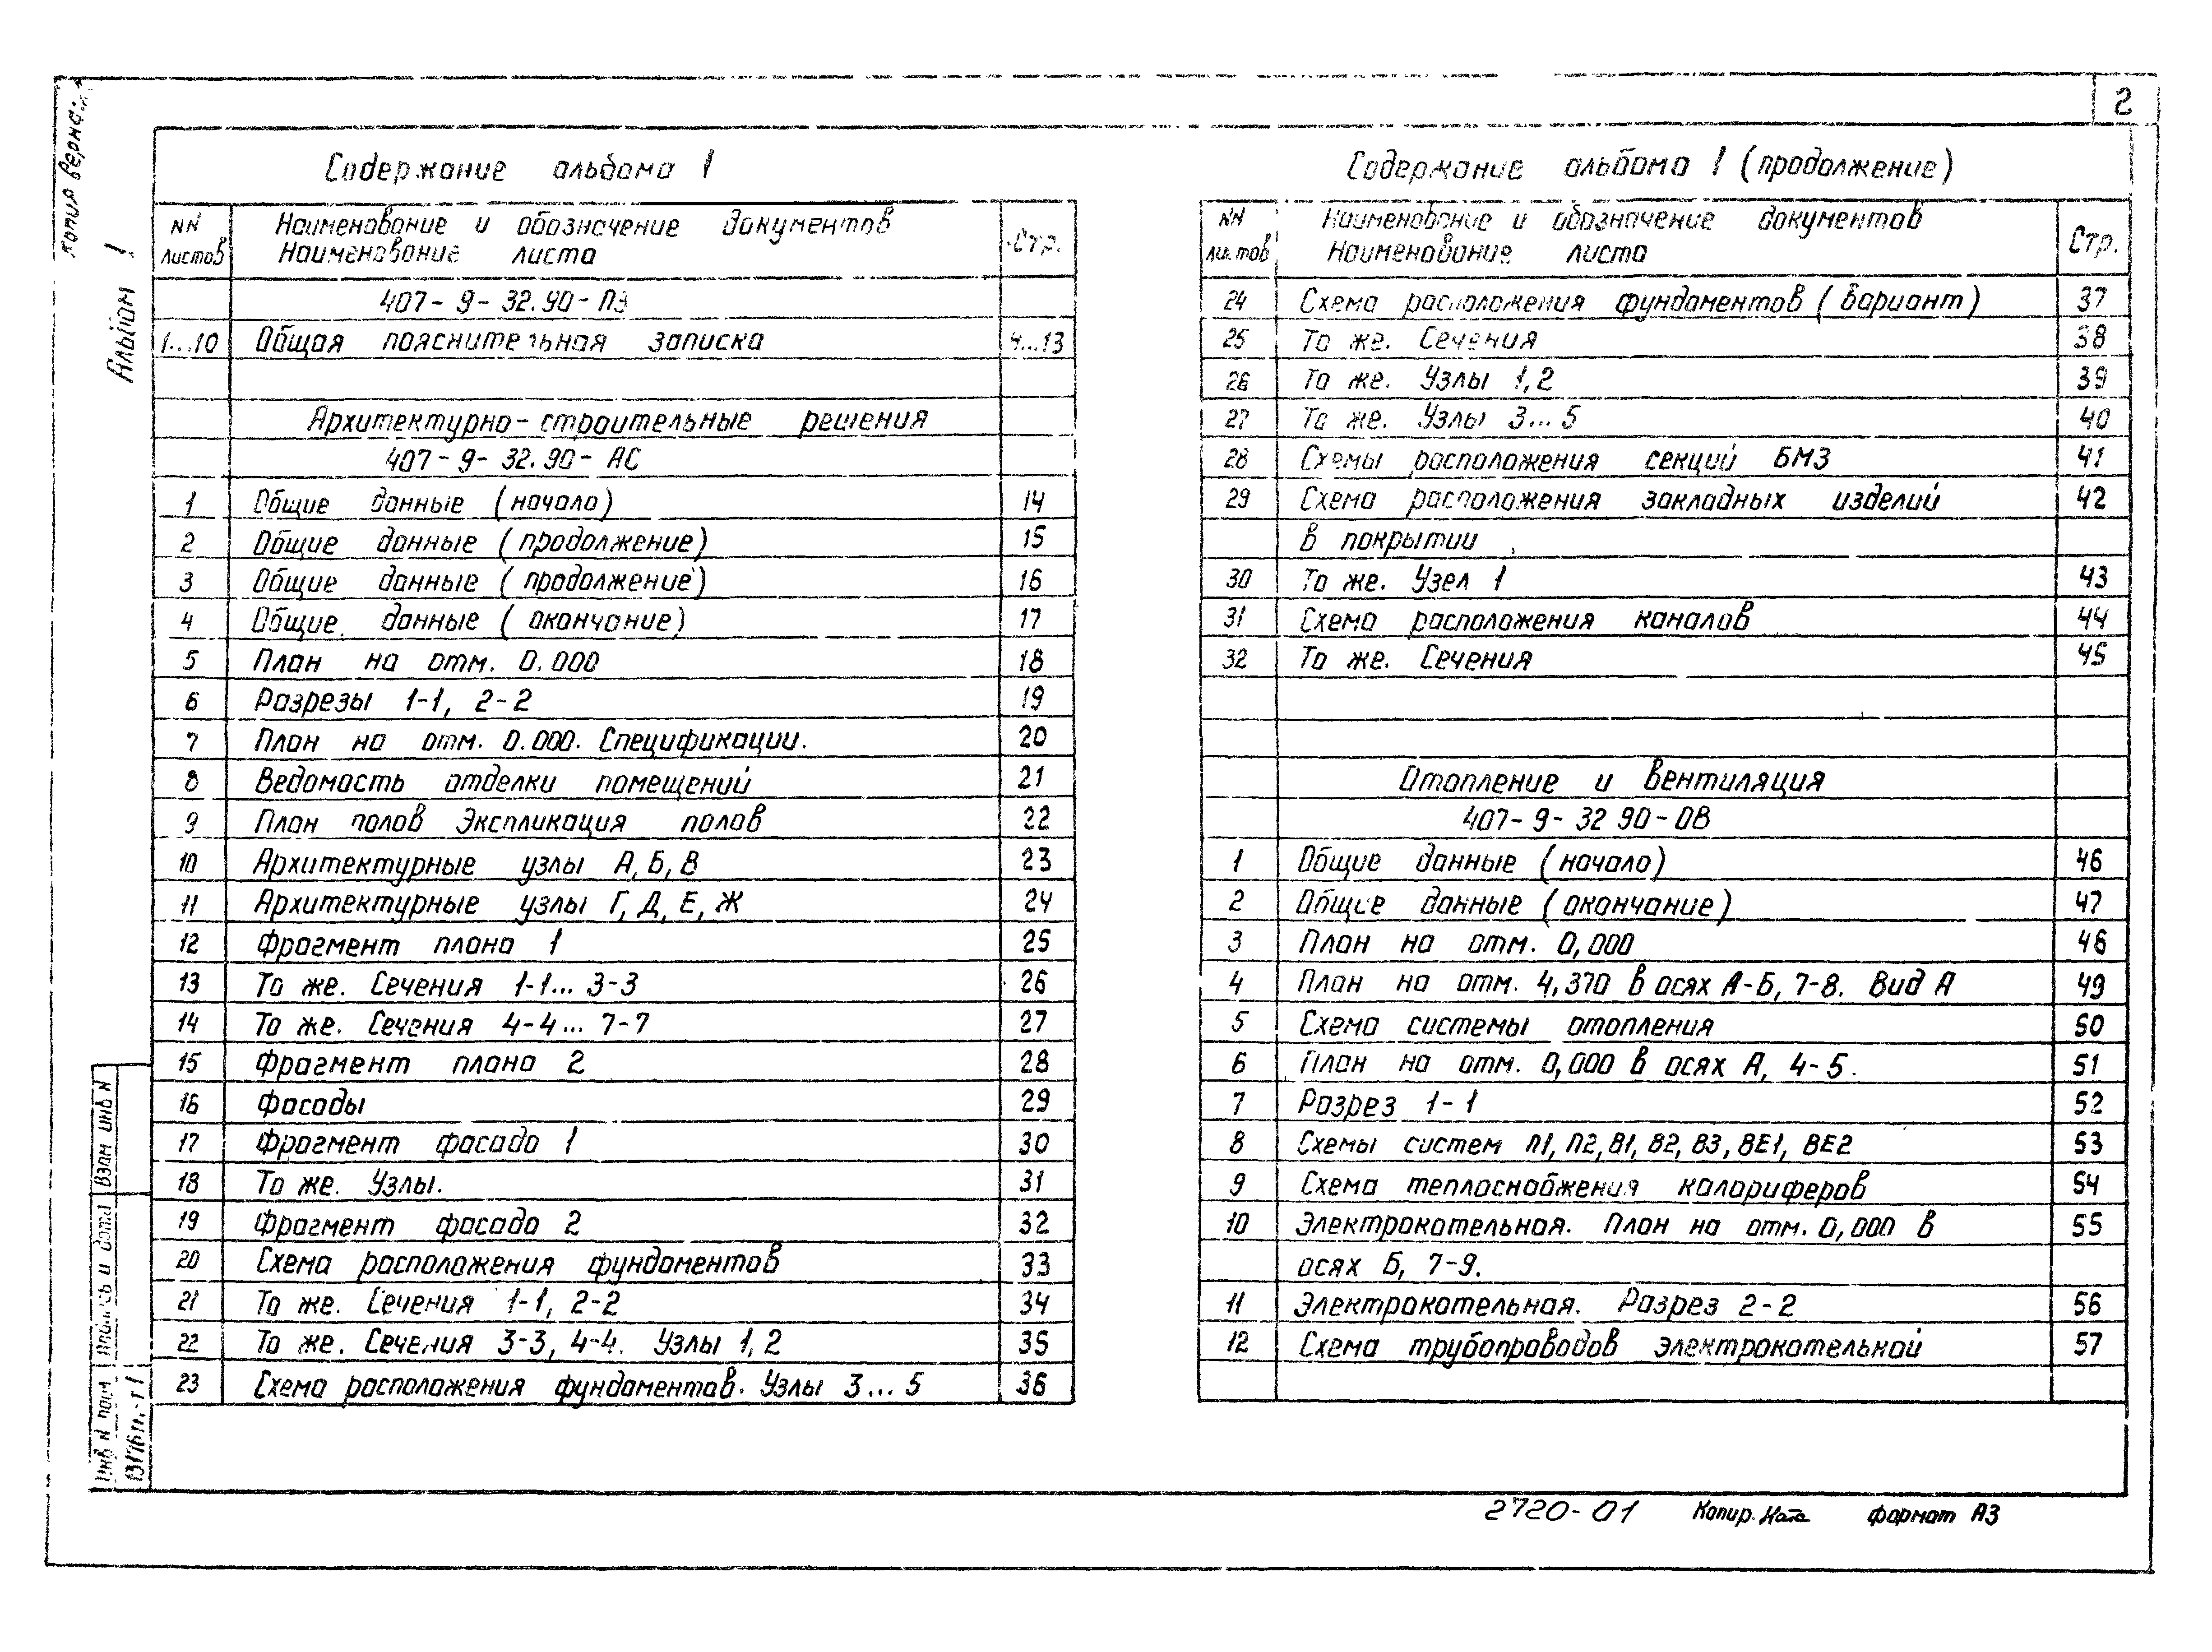 2
Копия верна:
Альбом 1
Содержание альбома 1
NN листов
Наименование и обозначение документов
Наименование листа
Стр.
407-9-32.90-ПЗ
1...10 Общая пояснительная записка 4...13
Архитектурно-строительные решения
407-9-32.90-АС
1 Общие данные (начало) 14
2 Общие данные (продолжение) 15
3 Общие данные (продолжение) 16
4 Общие данные (окончание) 17
5 План на отм. 0.000 18
6 Разрезы 1-1, 2-2 19
7 План на отм. 0.000. Спецификации. 20
8 Ведомость отделки помещений 21
9 План полов Экспликация полов 22
10 Архитектурные узлы А, Б, В 23
11 Архитектурные узлы Г, Д, Е, Ж 24
12 Фрагмент плана 1 25
13 То же. Сечения 1-1... 3-3 26
14 То же. Сечения 4-4... 7-7 27
15 Фрагмент плана 2 28
16 Фасады 29
17 Фрагмент фасада 1 30
18 То же. Узлы. 31
19 Фрагмент фасада 2 32
20 Схема расположения фундаментов 33
21 То же. Сечения 1-1, 2-2 34
22 То же. Сечения 3-3, 4-4. Узлы 1, 2 35
23 Схема расположения фундаментов. Узлы 3...5 36
Содержание альбома 1 (продолжение)
NN листов
Наименование и обозначение документов
Наименование листа
Стр.
24 Схема расположения фундаментов (вариант) 37
25 То же. Сечения 38
26 То же. Узлы 1, 2 39
27 То же. Узлы 3...5 40
28 Схемы расположения секций БМЗ 41
29 Схема расположения закладных изделий 42
в покрытии
30 То же. Узел 1 43
31 Схема расположения каналов 44
32 То же. Сечения 45
Отопление и вентиляция
407-9-32 90-ОВ
1 Общие данные (начало) 46
2 Общие данные (окончание) 47
3 План на отм. 0,000 48
4 План на отм. 4,370 в осях А-Б, 7-8. Вид А 49
5 Схема системы отопления 50
6 План на отм. 0,000 в осях А, 4-5. 51
7 Разрез 1-1 52
8 Схемы систем П1, П2, В1, В2, В3, ВЕ1, ВЕ2 53
9 Схема теплоснабжения калориферов 54
10 Электрокотельная. План на отм. 0,000 в 55
осях Б, 7-9.
11 Электрокотельная. Разрез 2-2 56
12 Схема трубопроводов электрокотельной 57
Взам инв N
Подпись и дата
Инв N подл
2720-01 Копир. Ната Формат А3